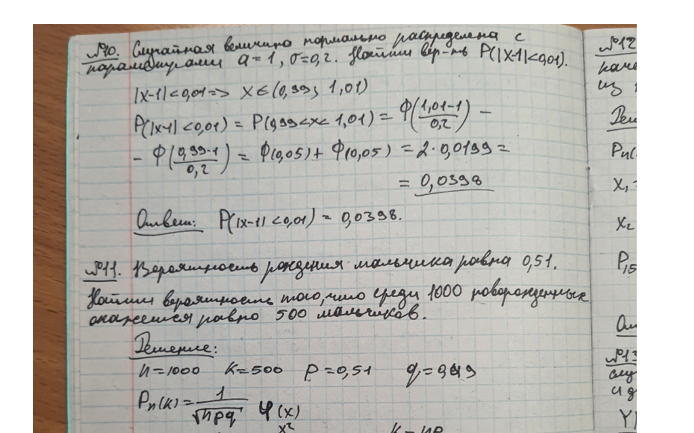 №10. Случайная величина нормально распределена с
параметрами a=1, σ=0,2. Найти вер-ть P(|X-1|<0,01).
|X-1|<0,01=> X∈(0,99; 1,01)
P(|X-1|<0,01) = P(0,99<X<1,01) = Φ((1,01-1)/0,2) -
- Φ((0,99-1)/0,2) = Φ(0,05) + Φ(0,05) = 2·0,0199 =
= 0,0398
Ответ: P(|X-1|<0,01) = 0,0398.
№11. Вероятность рождения мальчика равна 0,51.
Найти вероятность того, что среди 1000 новорожденных
окажется равно 500 мальчиков.
Решение:
n=1000 K=500 p=0,51 q=0,49
Pn(K)= 1/√npq φ(x)
x²
K-np
№12
каче
из
Реш
Pn(
X1
X2
P15
№13